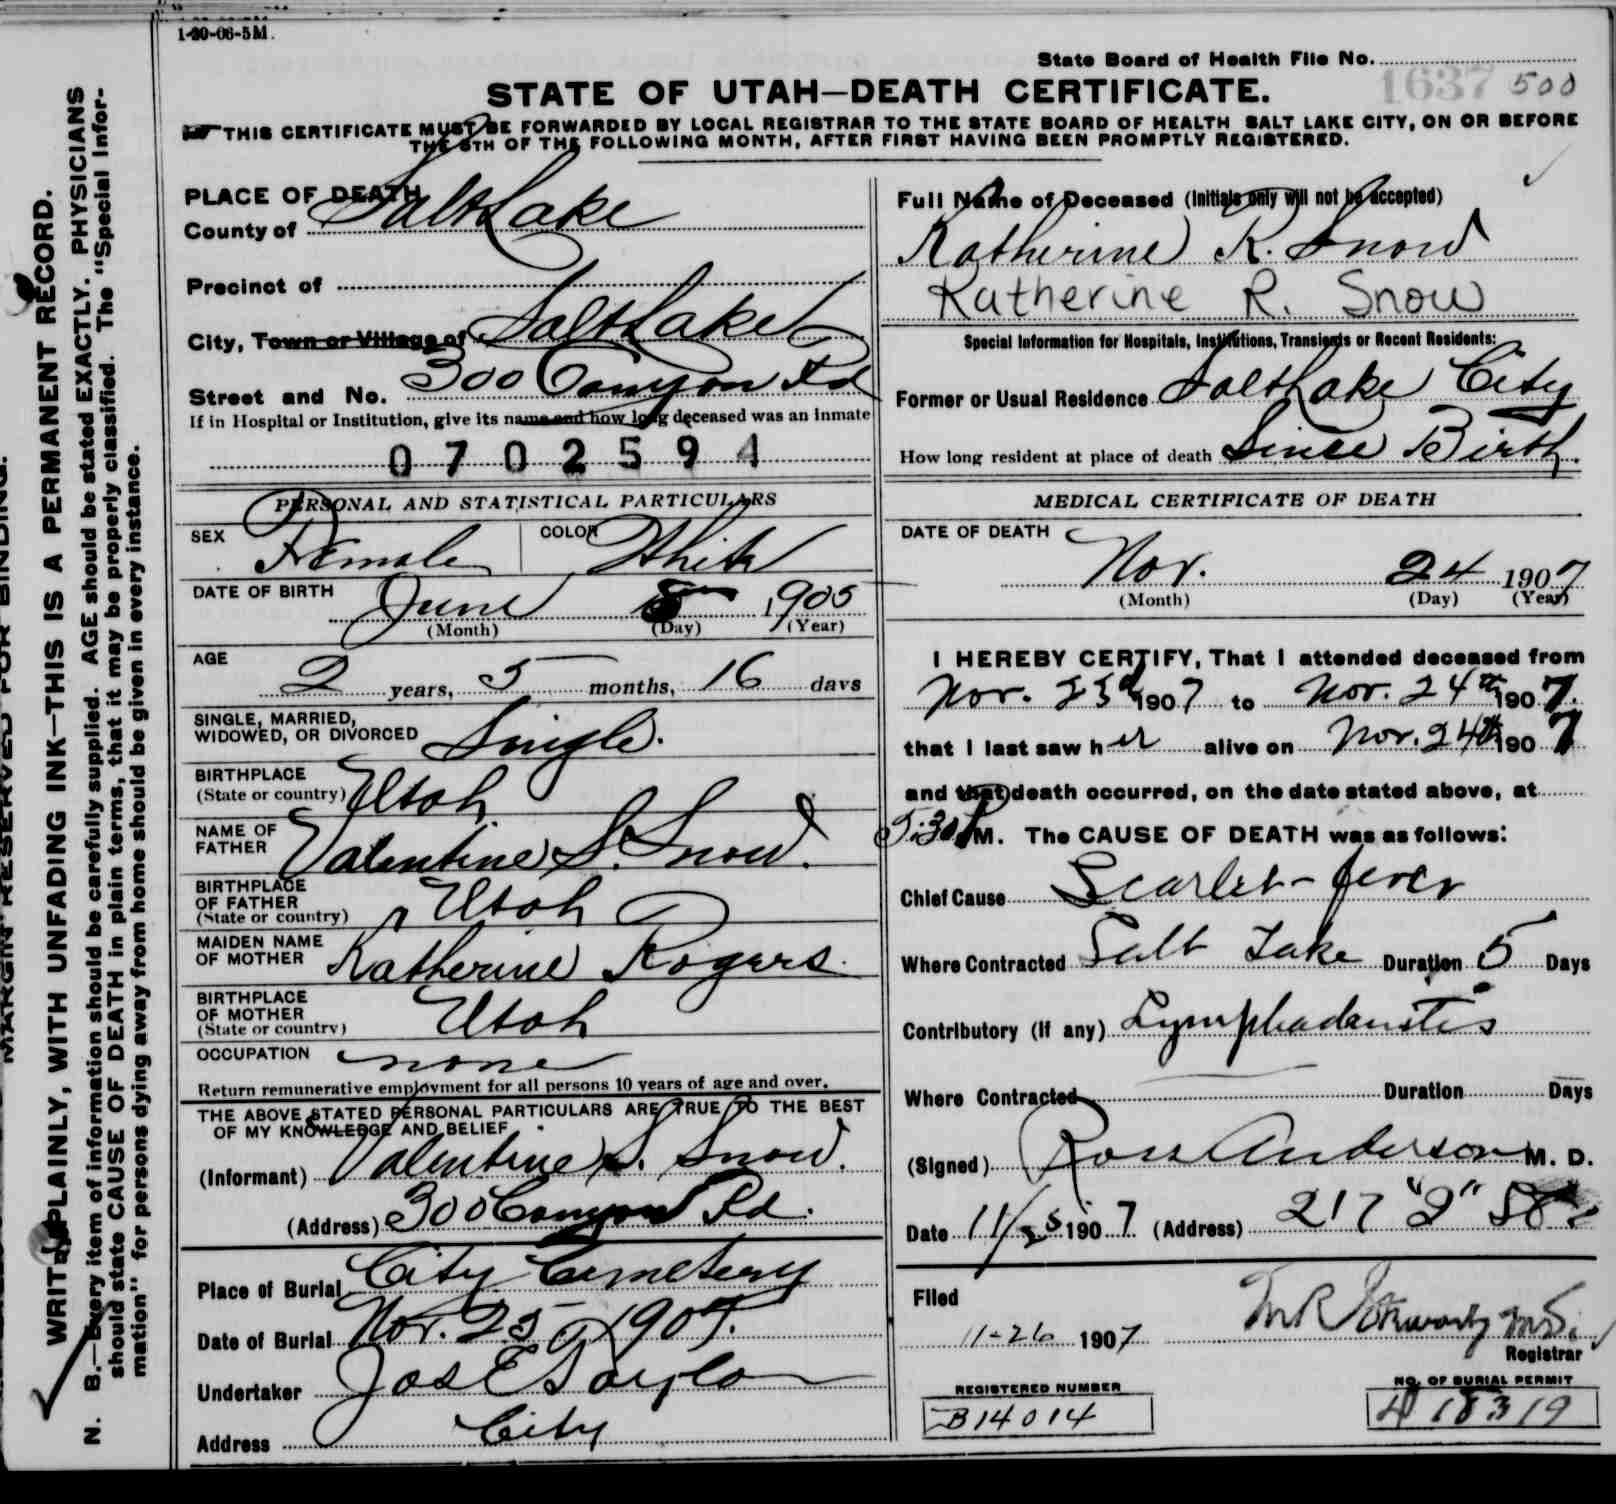 1-20-06-5M.
State Board of Health File No.
1637 500
STATE OF UTAH—DEATH CERTIFICATE.
THIS CERTIFICATE MUST BE FORWARDED BY LOCAL REGISTRAR TO THE STATE BOARD OF HEALTH SALT LAKE CITY, ON OR BEFORE
THE 5TH OF THE FOLLOWING MONTH, AFTER FIRST HAVING BEEN PROMPTLY REGISTERED.
MARGIN RESERVED FOR BINDING.
WRITE PLAINLY, WITH UNFADING INK—THIS IS A PERMANENT RECORD.
N. B.—Every item of information should be carefully supplied. AGE should be stated EXACTLY. PHYSICIANS
should state CAUSE OF DEATH in plain terms, that it may be properly classified. The "Special Infor-
mation" for persons dying away from home should be given in every instance.
PLACE OF DEATH
County of Salt Lake
Precinct of
City, Town or Village of Salt Lake
Street and No. 300 Canyon Rd
If in Hospital or Institution, give its name and how long deceased was an inmate
0702594
PERSONAL AND STATISTICAL PARTICULARS
SEX Female COLOR White
DATE OF BIRTH June 8 1905
(Month) (Day) (Year)
AGE 2 years, 5 months, 16 days
SINGLE, MARRIED,
WIDOWED, OR DIVORCED Single.
BIRTHPLACE
(State or country) Utah
NAME OF
FATHER Valentine S. Snow.
BIRTHPLACE
OF FATHER
(State or country) Utah
MAIDEN NAME
OF MOTHER Katherine Rogers.
BIRTHPLACE
OF MOTHER
(State or country) Utah
OCCUPATION none
Return remunerative employment for all persons 10 years of age and over.
THE ABOVE STATED PERSONAL PARTICULARS ARE TRUE TO THE BEST
OF MY KNOWLEDGE AND BELIEF
(Informant) Valentine S. Snow.
(Address) 300 Canyon Rd.
Place of Burial City Cemetery
Date of Burial Nov. 25 1907.
Undertaker Jos E Taylor
Address City
Full Name of Deceased (Initials only will not be accepted)
Katherine R. Snow
Katherine R. Snow
Special Information for Hospitals, Institutions, Transients or Recent Residents:
Former or Usual Residence Salt Lake City
How long resident at place of death Since Birth.
MEDICAL CERTIFICATE OF DEATH
DATE OF DEATH
Nov. 24 1907
(Month) (Day) (Year)
I HEREBY CERTIFY, That I attended deceased from
Nov. 23d 1907 to Nov. 24th 1907.
that I last saw her alive on Nov. 24th 1907
and that death occurred, on the date stated above, at
M. The CAUSE OF DEATH was as follows:
Chief Cause Scarlet-fever
Where Contracted Salt Lake Duration 5 Days
Contributory (if any) Lymphadenitis
Where Contracted Duration Days
(Signed) Ross Anderson M. D.
Date 11/25 1907 (Address) 217
Filed
11-26 1907
Registrar
REGISTERED NUMBER
B14014
NO. OF BURIAL PERMIT
18319